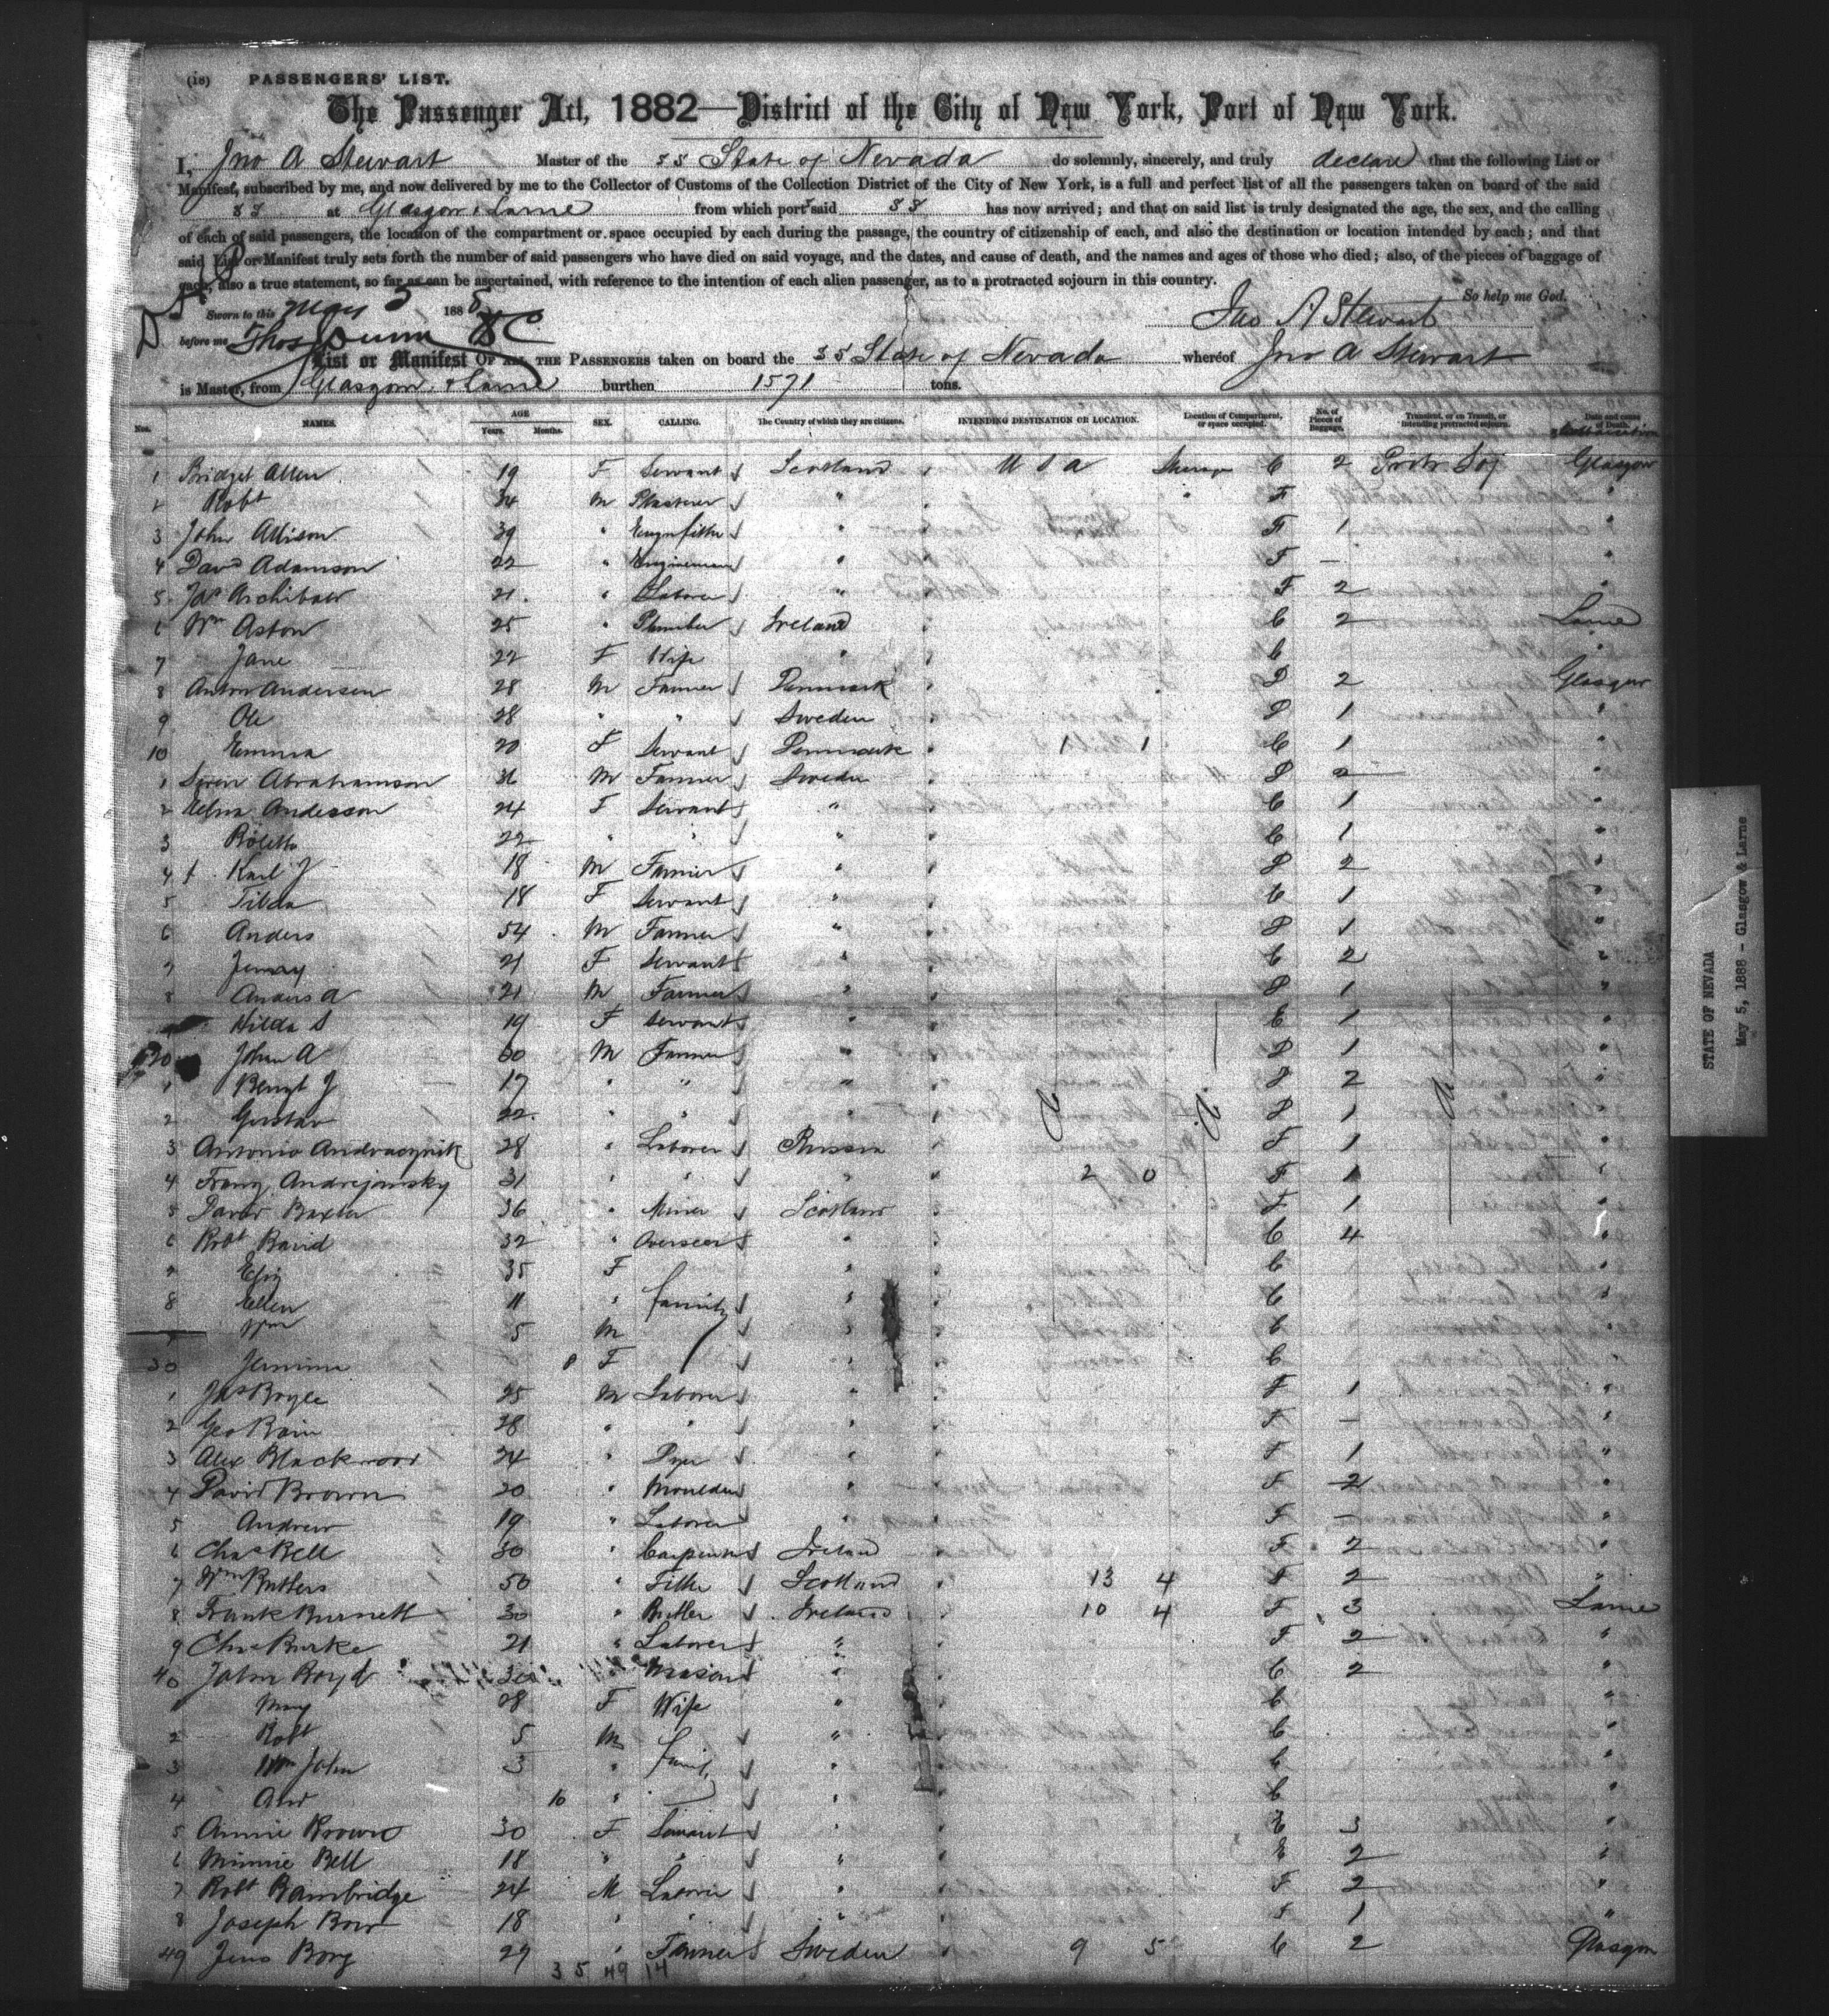 (18) PASSENGERS' LIST.
The Passenger Act, 1882—District of the City of New York, Port of New York.
I, Jno A Stewart Master of the SS State of Nevada do solemnly, sincerely, and truly declare that the following List or
Manifest, subscribed by me, and now delivered by me to the Collector of Customs of the Collection District of the City of New York, is a full and perfect list of all the passengers taken on board of the said
SS at Glasgow & Larne from which ports said SS has now arrived; and that on said list is truly designated the age, the sex, and the calling
of each of said passengers, the location of the compartment or space occupied by each during the passage, the country of citizenship of each, and also the destination or location intended by each; and that
said List or Manifest truly sets forth the number of said passengers who have died on said voyage, and the dates, and cause of death, and the names and ages of those who died; also, of the pieces of baggage of
each, also a true statement, so far as can be ascertained, with reference to the intention of each alien passenger, as to a protracted sojourn in this country.
So help me God.
Sworn to this May 5 1888 Jno A Stewart
before me Thos Dunn DC
List or Manifest OF ALL THE PASSENGERS taken on board the SS State of Nevada whereof Jno A Stewart
is Master, from Glasgow & Larne burthen 1571 tons.
Nos. NAMES. AGE Years. Months. SEX. CALLING. The Country of which they are citizens. INTENDING DESTINATION OR LOCATION. Location of Compartment, or space occupied. No. of Pieces of Baggage. Transient, or in Transit, or intending protracted sojourn. Date and cause of Death.
1 Bridget Allen 19 F Servant Scotland U S A Steerage C 2 Protr Soj Glasgow
2 Robt 34 M Plasterer " " F "
3 John Allison 39 " Enginfitter " F 1 "
4 David Adamson 22 " Engineman " F — "
5 Jas Archibald 21 " Laborer " F 2 "
6 Wm Aston 25 " Plumber Ireland C 2 Larne
7 Jane 22 F Wife " C "
8 Anton Andersen 28 M Farmer Denmark 2 Glasgow
9 Ole 28 " " Sweden 1 "
10 Emma 20 F Servant Denmark 1 1 C 1 "
1 Abrahamson M Farmer Sweden 2 "
2 Andersson 24 F Servant " C 1 "
3 22 " " " C 1 "
4 Karl J 18 M Farmer " 2 "
5 Tilda 18 F Servant " C 1 "
6 Anders 54 M Farmer " 1 "
7 Jenny 21 F Servant " C 2 "
8 Anders A 21 M Farmer " 1 "
Hilda S 19 F Servant " 1 "
20 John A 30 M Farmer " 1 "
1 Bengt J 17 " " " 2 "
2 Gustav 22 " " " 1 "
3 Antonio 28 " Laborer Russia F 1 "
4 Franz Andrejansky 31 " " " 2 0 F 1 "
5 David Baxter 36 " Miner Scotland F 1 "
6 Robt Baird 32 " Overseer " C 4 "
7 35 F " C "
8 Ellen 11 " family " C "
9 Wm 5 M " C "
30 Jemima 8 F " C "
1 Jas Boyle 25 M Laborer " F 1 "
2 Geo Bain 28 " " " F — "
3 Alex Blackwood 24 " Dyer " F 1 "
4 David Brown 20 " Moulder " F 2 "
5 Andrew 19 " Laborer " F — "
6 Chas Bell 30 " Carpenter Ireland F 2 "
7 Wm Butters 50 " Fitter Scotland 13 4 F 2 "
8 Frank Burnett 30 " Butler Ireland 10 4 F 3 Larne
9 Chas Burke 21 " Laborer " F 2 "
40 John Boyd Mason " C 2 "
1 Mary 28 F Wife " C "
2 Robt 5 M " C "
3 Wm John 3 " Family " C "
4 10 " " C "
5 Annie Brown 30 F Servant " E 3 "
6 Minnie Bell 18 " " " E 2 "
7 Robt Bambridge 24 M Laborer " F 2 "
8 Joseph 18 " " " F 1 "
49 Jens Borg 29 " Farmer Sweden 9 5 C 2 Glasgow
3 5 49 14
STATE OF NEVADA
May 5, 1888 - Glasgow & Larne